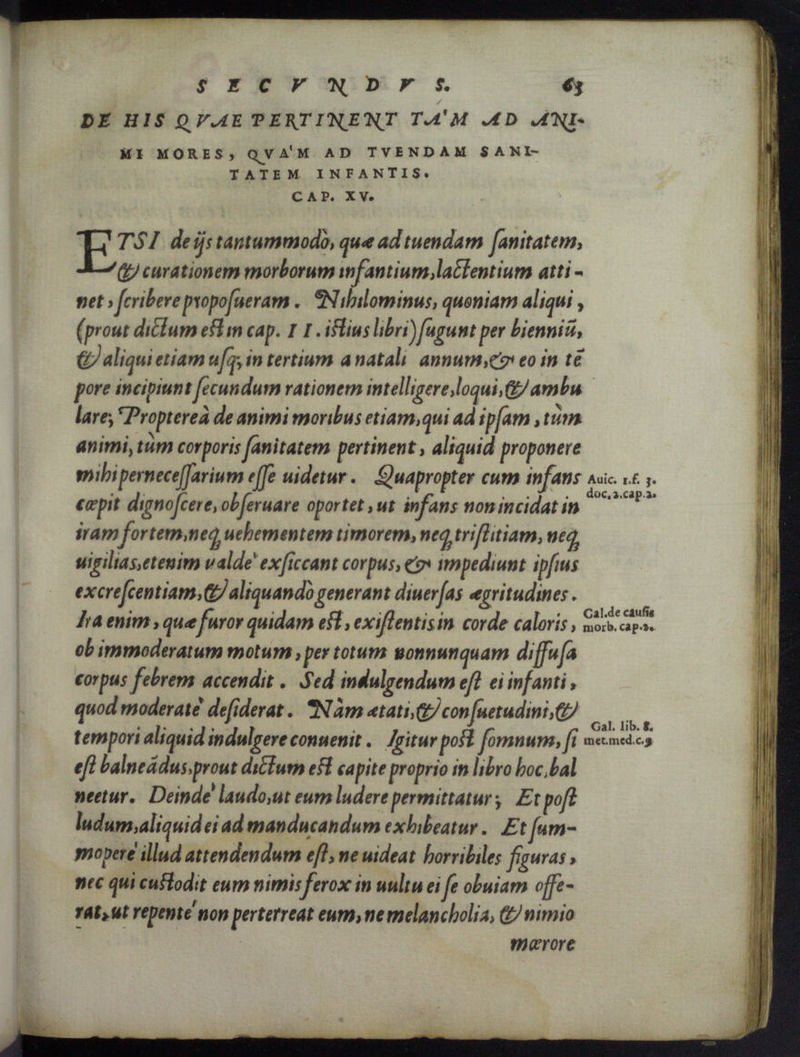 SECVNDVS. 63
DE HIS QVAE PERTINENT TA'M AD ANI-
MI MORES, QVA'M AD TVENDAM SANI-
TATEM INFANTIS.
CAP. XV.
ETSI de ijs tantummodò, quæ ad tuendam sanitatem,
& curationem morborum infantium, lactentium atti-
net, scribere proposueram. Nihilominus, quoniam aliqui,
(prout dictum est in cap. II. istius libri) sugunt per bienniũ,
& aliqui etiam usq; in tertium a natali annum, & eo in tẽ
pore incipiunt secundum rationem intelligere, loqui, & ambu
lare; Propterea de animi moribus etiam, qui ad ipsam, tùm
animi, tùm corporis sanitatem pertinent, aliquid proponere
mihi pernecessarium esse uidetur. Quapropter cum infans
Auic. 1.f. 3.
cœpit dignoscere, obseruare oportet, ut infans non incidat in
doc.2.cap.2.
iram fortem, neq; uehementem timorem, neq; tristitiam, neq;
uigilias, etenim valde' exsiccant corpus, & impediunt ipsius
excrescentiam, & aliquandò generant diuersas ægritudines.
Ira enim, quæ furor quidam est, existentis in corde caloris,
Gal. de causis
morb. cap.2.
ob immoderatum motum, per totum nonnunquam diffusa
corpus febrem accendit. Sed indulgendum est ei infanti,
quod moderate' desiderat. Nàm ætati, & consuetudini, &
tempori aliquid indulgere conuenit. Igitur post somnum, si
Gal. lib. 8.
met.med.c.9
est balneādus, prout dictum est capite proprio in libro hoc, bal
neetur. Deinde' laudo, ut eum ludere permittatur; Et post
ludum, aliquid ei ad manducandum exhibeatur. Et sum-
mopere' illud attendendum est, ne uideat horribiles figuras,
nec qui custodit eum nimis ferox in uultu ei se obuiam offe-
rat, ut repente' non perterreat eum, ne melancholia, & nimio
mœrore